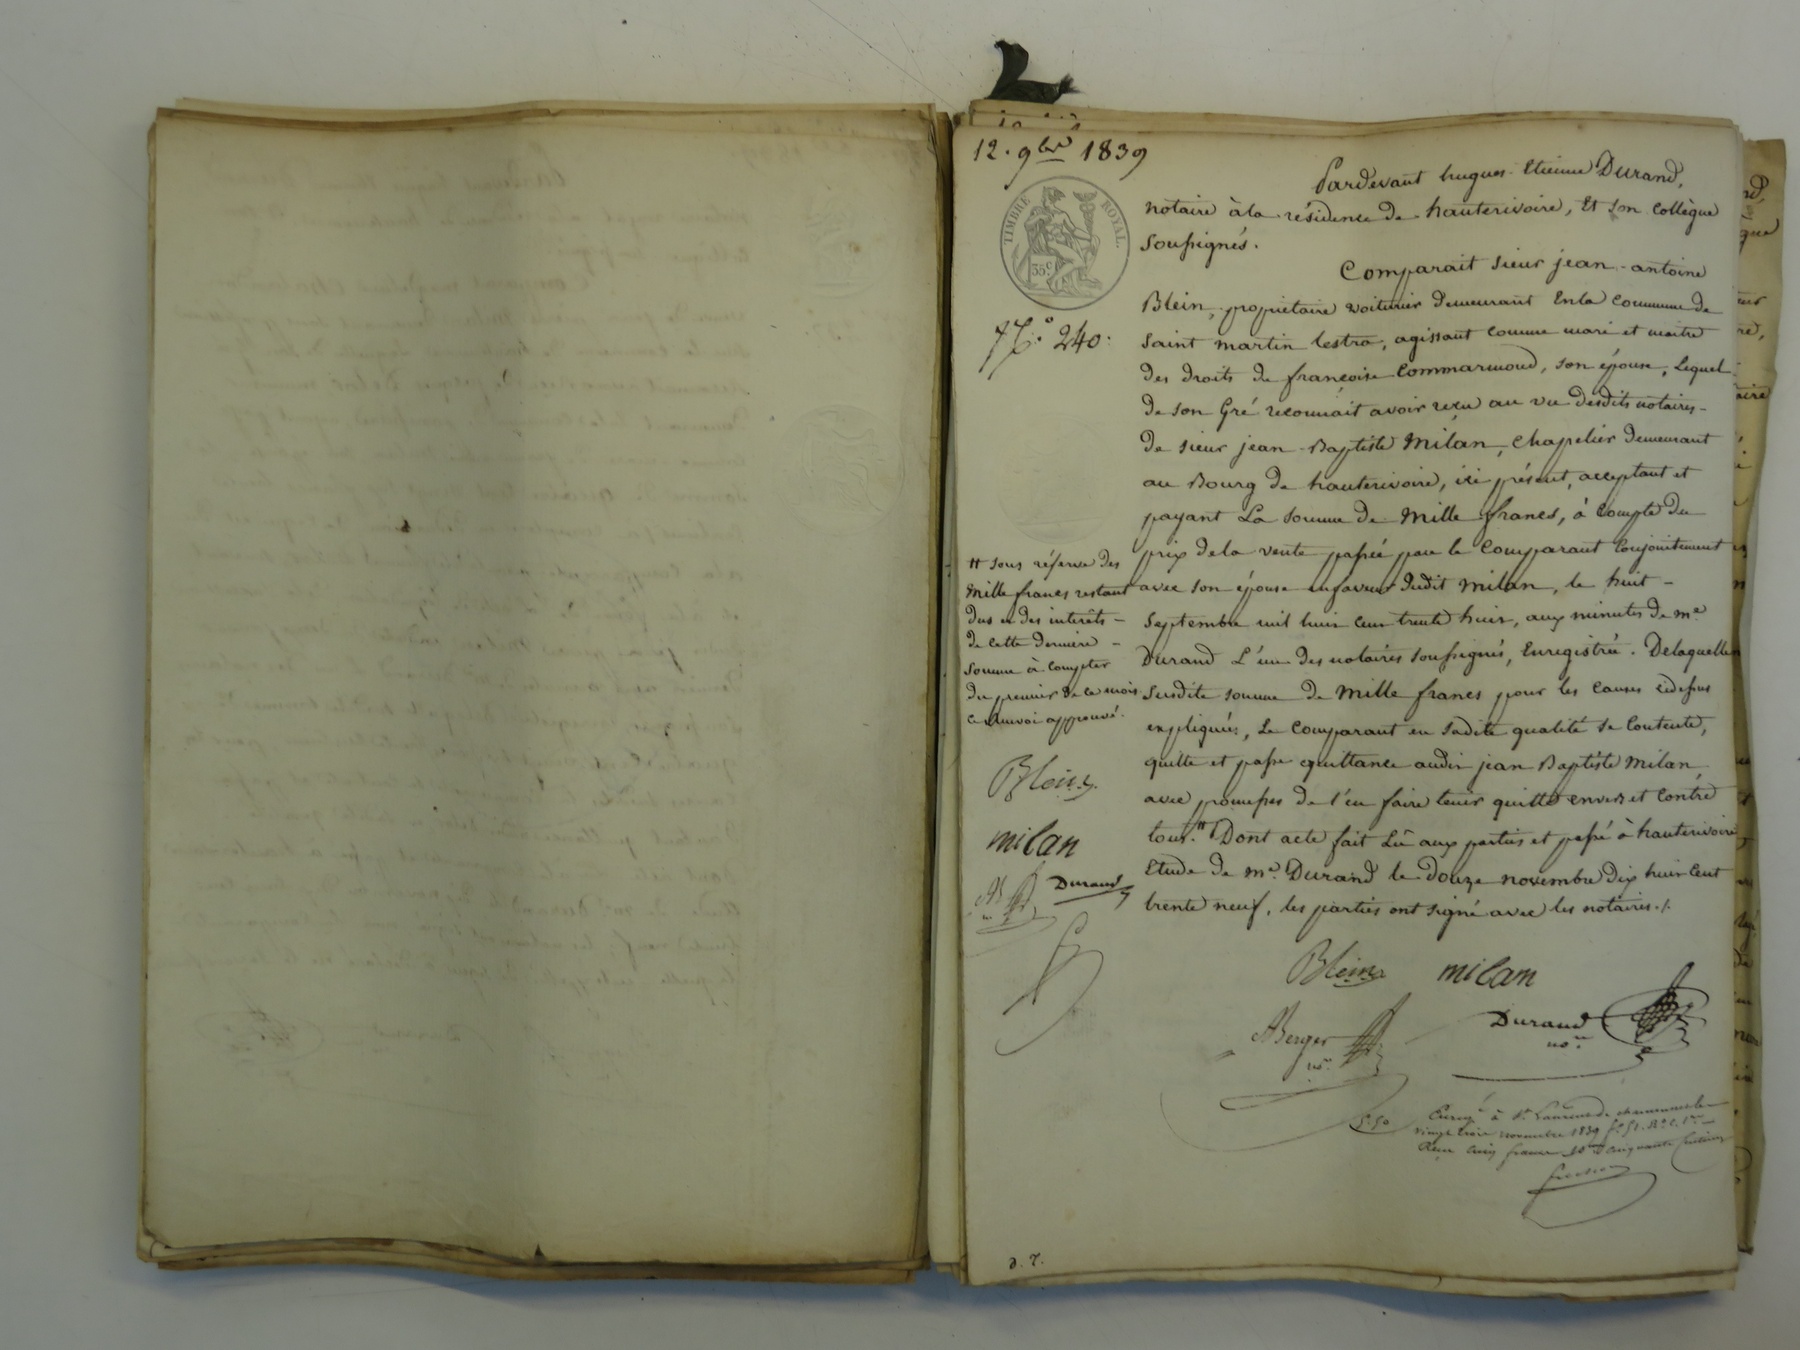 12. 9bre 1839
TIMBRE ROYAL.
35c
N.° 240.
Pardevant hugues Etienne Durand,
notaire à la résidence de hauterivoire, Et son Collègue
Soussignés.
Comparait Sieur jean-antoine
Blein, propriétaire voiturier demeurant Enla Commune de
Saint martin lestra, agissant Comme mari et maitre
des droits de françoise Commarmond, son épouse, Lequel
de son Gré reconnait avoir reçu au vu desdits notaires
de sieur jean-Baptiste Milan, Chapelier demeurant
au Bourg de hauterivoire, ici présent, acceptant et
payant La somme de Mille francs, à Compte du
prix dela vente passée par le Comparant Conjointement
avec son épouse enfaveur dudit Milan, le huit
Septembre mil huit cent trente huit, aux minutes de me
Durand L'un des notaires soussignés, Enregistrée. Delaquelle
Susdite somme de Mille francs pour les Causes cidessus
expliquées, Le Comparant en sadite qualité se Contente,
quitte et passe quittance audit jean Baptiste Milan,
avec promesse de l'en faire tenir quitte envers et Contre
tous. # Dont acte fait Lû aux parties et passé à hauterivoire
Etude de me Durand le Douze novembre Dix huit Cent
trente neuf, les parties ont signé avec les notaires ./.
# sous réserve des
Mille francs restant
dus et des intérêts
de cette dernière
Somme à Compter
du premier de ce mois
ce renvoi approuvé.
Blein
milan
Durand
Blein milan
Berger Durand
nore nore
5.50
Enregé à St Laurent de chamousset le
vingt trois novembre 1839 fo 51. Ro C. 1re
Reçu Cinq francs 10me Cinquante Centimes
d. 7.